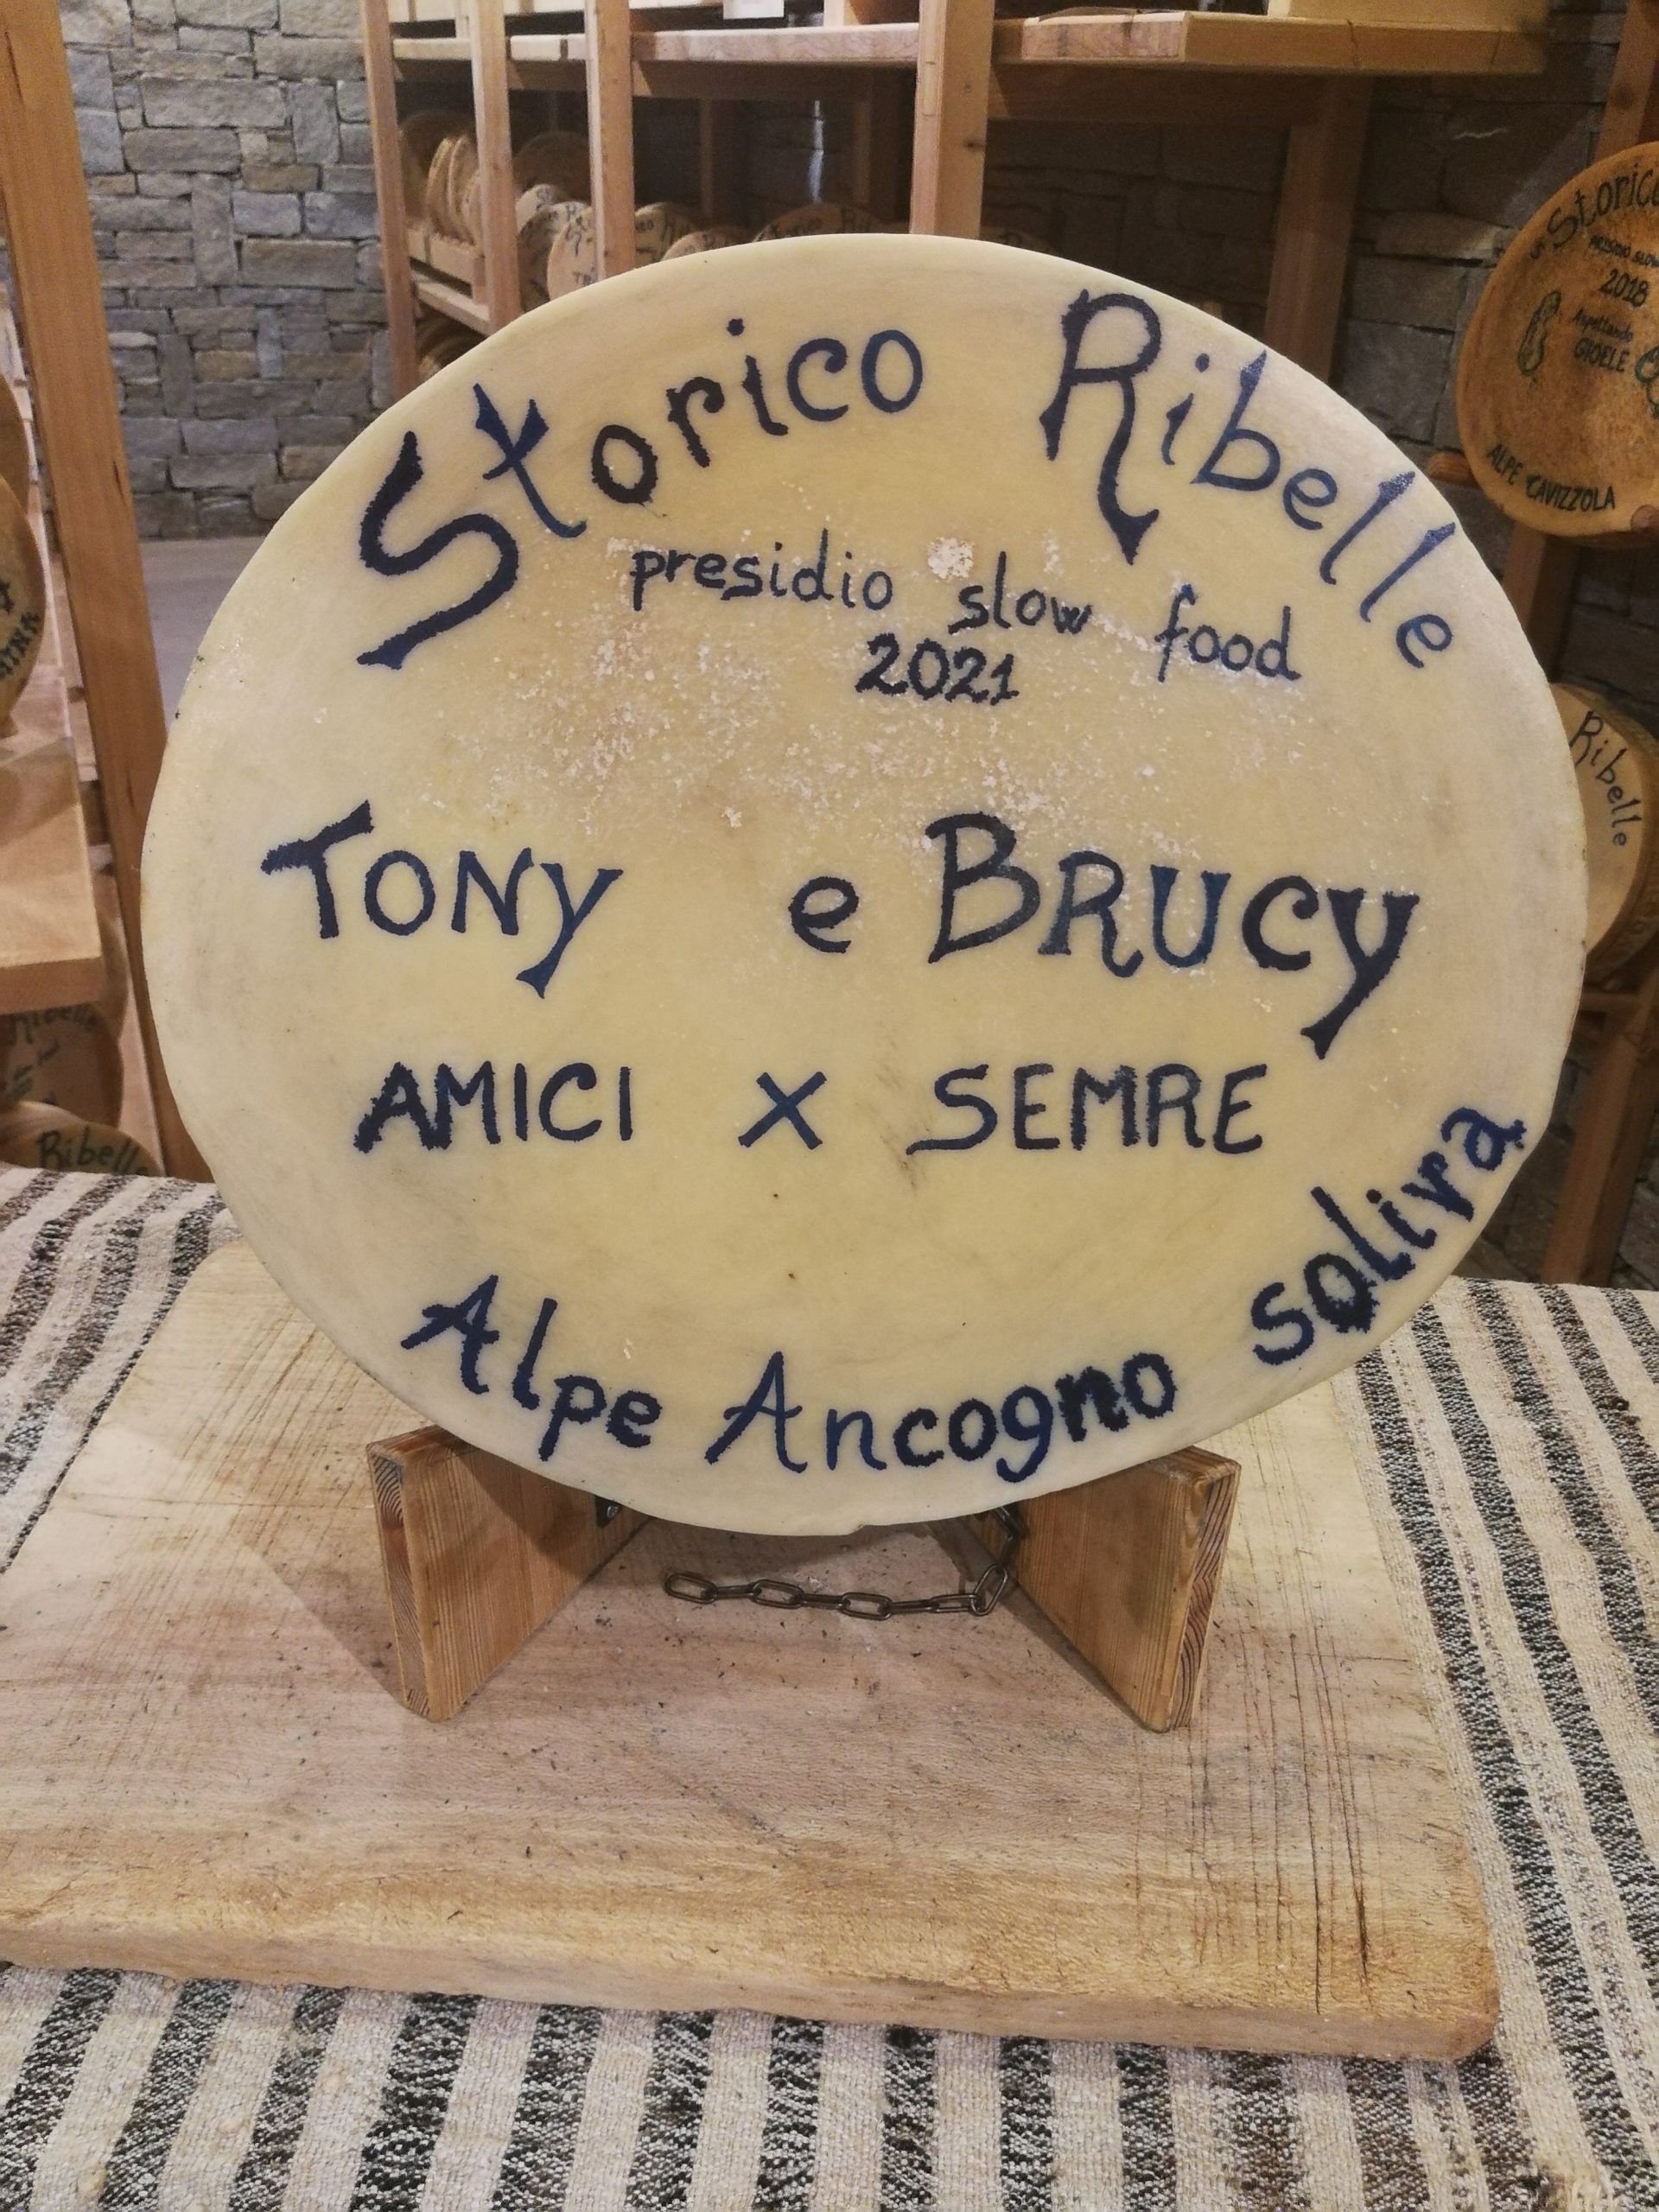 Storico Ribelle
presidio slow food
2021
TONY e BRUCY
AMICI X SEMRE
Alpe Ancogno soliva
Storico
PRESIDIO SLOW
2018
Aspettando
GIOELE
ALPE CAVIZZOLA
Ribelle
Ribelle
Ribelle